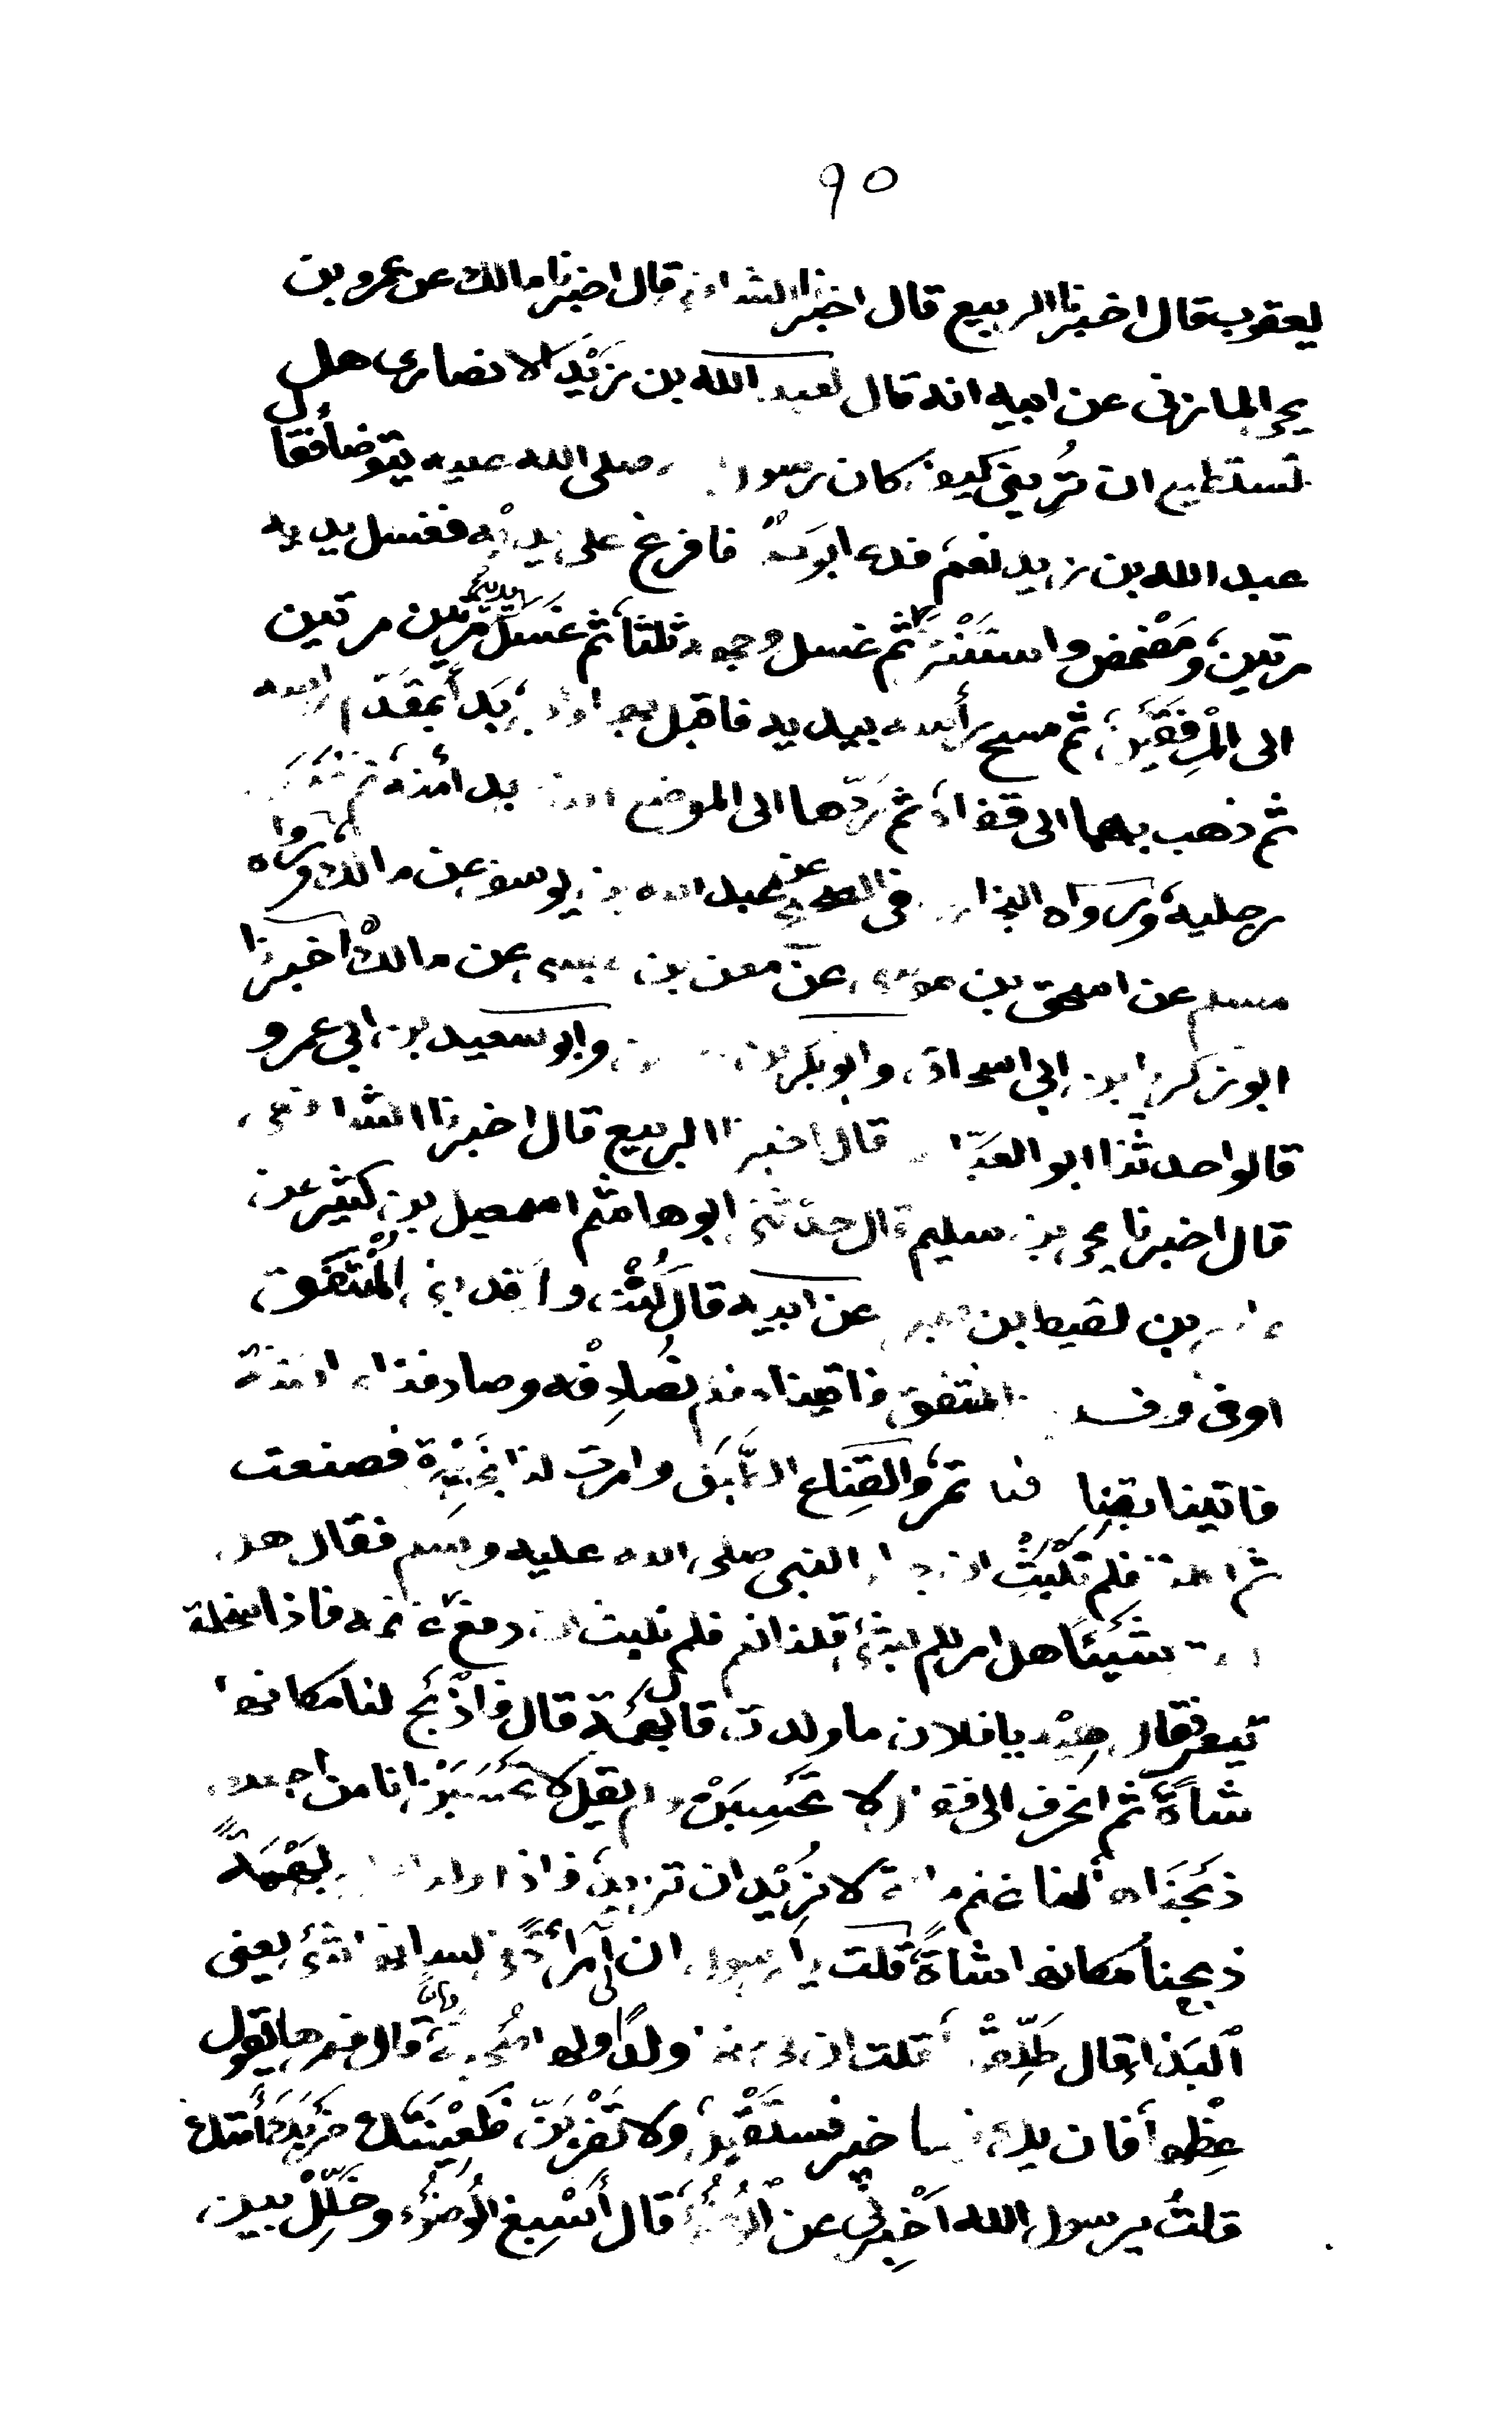 ٩٥
يعقوب قال اخبرنا الربيع قال اخبرنا الشافعي قال اخبرنا مالك عن عمرو بن
يحيى المازني عن ابيه انه قال لعبد الله بن زَيْد الانصاري هل
تستطيع ان تُريني كيف كان رسول صلى الله عليه يتوضأ فقال
عبد الله بن زيد نعم فدعا بوَضوء فافرغ على يديه فغسل يديه
مرتين ومَضْمض واستَنْثر ثم غسل وجهه ثلثا ثم غسل يديه مرتين مرتين
الى المِرفَقَين ثم مسح رأسه بيديه فاقبل بهما وادبر بَدَأ بمقَدّم راسه
ثم ذهب بهما الى قفاه ثم رَدّهما الى الموضع الذي بدأ منه ثم غسل
رجليه ورواه البخاري في الصحيح عن عبد الله بن يوسف عن مالك ورواه
مسلم عن اسحق بن موسى عن معن بن عيسى عن مالك اخبرنا
ابو زكريا بن ابي اسحاق وابو بكر وابو سعيد بن ابي عمرو
قالوا حدثنا ابو العبّاس قال اخبرنا الربيع قال اخبرنا الشافعي
قال اخبرنا يحيى بن سليم قال حدثني ابو هاشم اسمعيل بن كثير عن
عاصم بن لقيط بن صبرة عن ابيه قال كُنْتُ وافد بني المُنْتَفق
او في وفد المنتفق فاتيناه فلم نُصادِفْه وصادفنا عائشة
فاتينا بقناع فيه تمر والقِنَاع الطَّبَق وامرت لنا بخَزِيرة فصنعت
ثم اكلنا فلم نَلْبَثْ ان جاء النبي صلى الله عليه وسلم فقال هل
اكلتم شَيئًا هل امر لكم بشئ قلنا نعم فلم نلبث ان دفع غنمه فاذا سخلة
تيعر فقال هِيْه يا فلان ما ولدت قال بَهْمَة قال فاذْبَح لنا مكانها
شاةً ثم انحرف الى فقال لا تحسِبَنْ ولم يقل لا تحسَبَنْ انا من اجلك
ذبَحْنَاها لنا غنم مائة لا نُرِيْد ان تزيد فاذا ولد الراعي بَهْمَةً
ذبحنا مكانها شاةً قلت يا رسول ان لي امرأةً في لسانها شئ يعني
البَذاء قال طَلِّقْها قلت ان لي منها ولدًا ولها صُحْبة قال فمرها يقول
عِظْها فان يك فيها خير فستَقْبَل ولا تَضْرِبَنّ ظَعِيْنَتَك ضَربَكَ أَمَتَك
قلتُ يرسول الله أخْبِرني عن الوُضُوء قال أَسْبِغ الوُضُوْء وخَلِّلْ بين